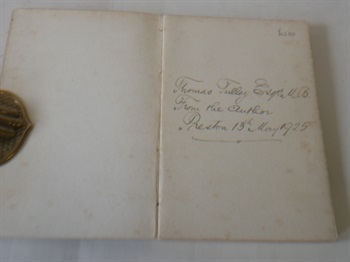 Thomas Tulley Esqr. M.B.
From the Author
Preston 13th May 1925